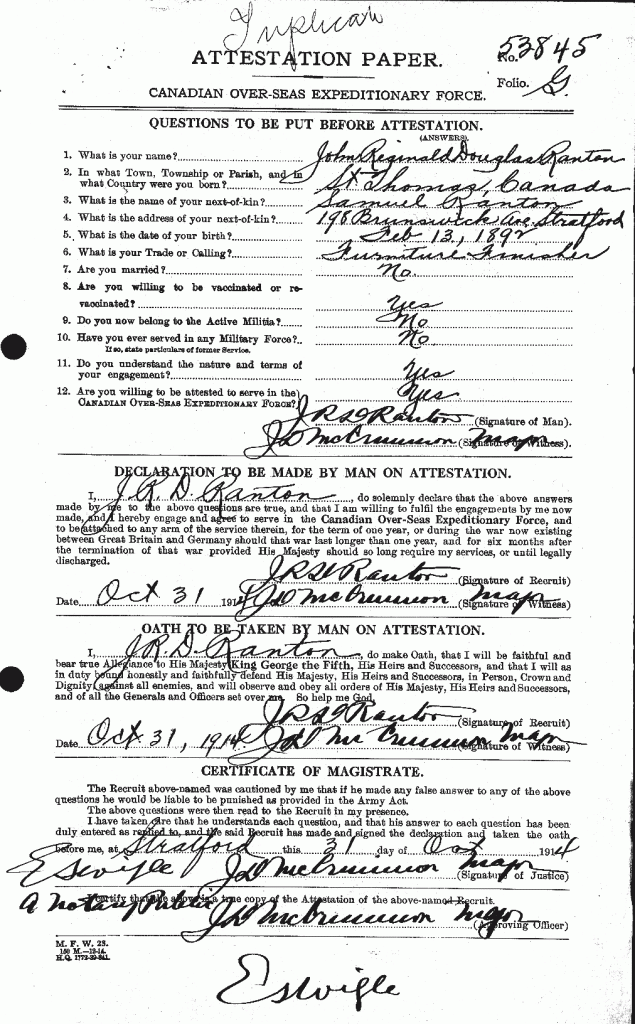 Triplicate
ATTESTATION PAPER.
No. 53845
Folio. G.
CANADIAN OVER-SEAS EXPEDITIONARY FORCE.
QUESTIONS TO BE PUT BEFORE ATTESTATION.
(ANSWERS).
1. What is your name? John Reginald Douglas Ranton
2. In what Town, Township or Parish, and in
what Country were you born? St Thomas, Canada
3. What is the name of your next-of-kin? Samuel Ranton
4. What is the address of your next-of-kin? 198 Brunswick Ave. Stratford
5. What is the date of your birth? Feb 13, 1892
6. What is your Trade or Calling? Furniture Finisher
7. Are you married? No
8. Are you willing to be vaccinated or re-
vaccinated? Yes
9. Do you now belong to the Active Militia? No
10. Have you ever served in any Military Force? No
If so, state particulars of former Service.
11. Do you understand the nature and terms of
your engagement? Yes
12. Are you willing to be attested to serve in the
CANADIAN OVER-SEAS EXPEDITIONARY FORCE? Yes
J R D Ranton (Signature of Man).
J D McCrimmon Major (Signature of Witness).
DECLARATION TO BE MADE BY MAN ON ATTESTATION.
I, J. R. D. Ranton, do solemnly declare that the above answers
made by me to the above questions are true, and that I am willing to fulfil the engagements by me now
made, and I hereby engage and agree to serve in the Canadian Over-Seas Expeditionary Force, and
to be attached to any arm of the service therein, for the term of one year, or during the war now existing
between Great Britain and Germany should that war last longer than one year, and for six months after
the termination of that war provided His Majesty should so long require my services, or until legally
discharged.
J R D Ranton (Signature of Recruit)
Date Oct 31 1914 J D McCrimmon Major (Signature of Witness)
OATH TO BE TAKEN BY MAN ON ATTESTATION.
I, J. R. D. Ranton, do make Oath, that I will be faithful and
bear true Allegiance to His Majesty King George the Fifth, His Heirs and Successors, and that I will as
in duty bound honestly and faithfully defend His Majesty, His Heirs and Successors, in Person, Crown and
Dignity, against all enemies, and will observe and obey all orders of His Majesty, His Heirs and Successors,
and of all the Generals and Officers set over me. So help me God.
J R D Ranton (Signature of Recruit)
Date Oct 31, 1914 J D McCrimmon Major (Signature of Witness)
CERTIFICATE OF MAGISTRATE.
The Recruit above-named was cautioned by me that if he made any false answer to any of the above
questions he would be liable to be punished as provided in the Army Act.
The above questions were then read to the Recruit in my presence.
I have taken care that he understands each question, and that his answer to each question has been
duly entered as replied to, and the said Recruit has made and signed the declaration and taken the oath
before me, at Stratford this 31 day of Oct 1914
J D McCrimmon Major (Signature of Justice)
I certify that the above is a true copy of the Attestation of the above-named Recruit.
A Notary Public J D McCrimmon Major (Approving Officer)
M. F. W. 23.
H.Q. 1772-39-841.